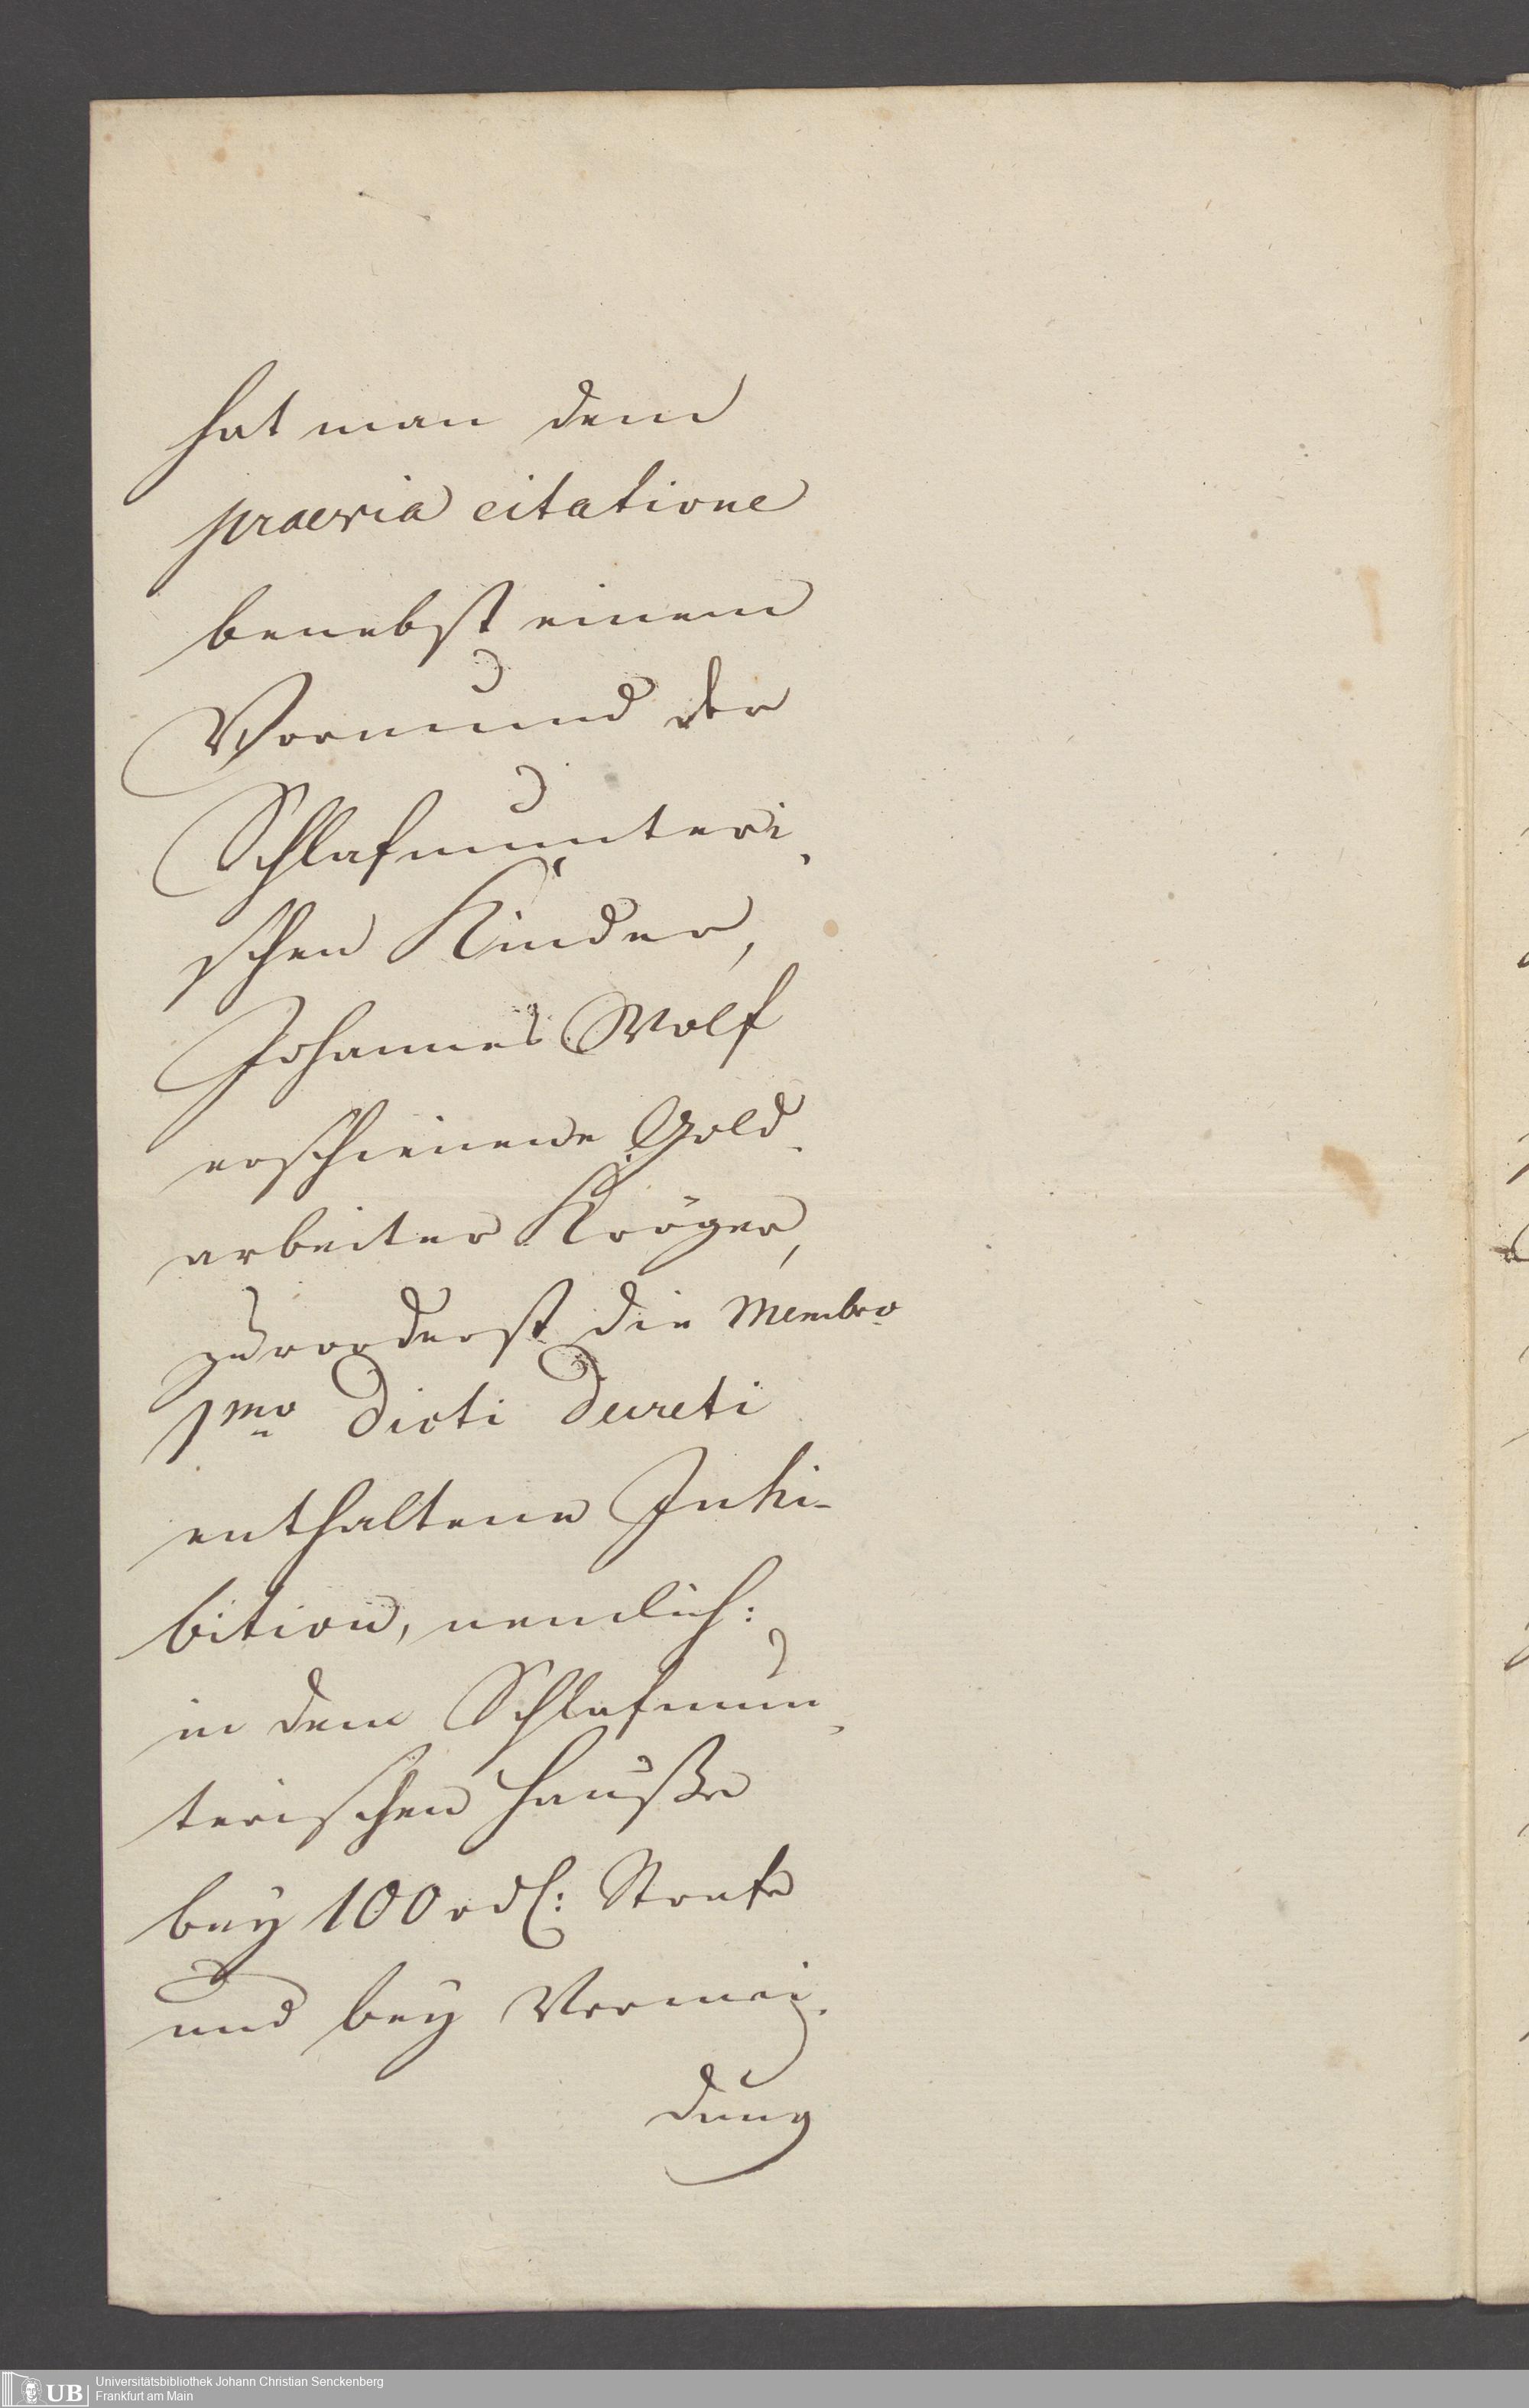 hat man dem
praevia citatione
benebst einem
Vormund der
Schlafmunteri-
schen Kinder,
Johannes Wolf
erschienene Gold-
arbeiter Kröger,
zuvorderst die Membro
1mo dicti Decreti
enthaltene Inhi-
bition, nemlich:
in dem Schlafmun-
terischen Hauße
bey 100 rdl: Strafe
und bey Vermei-
dung
UB
Universitätsbibliothek Johann Christian Senckenberg
Frankfurt am Main